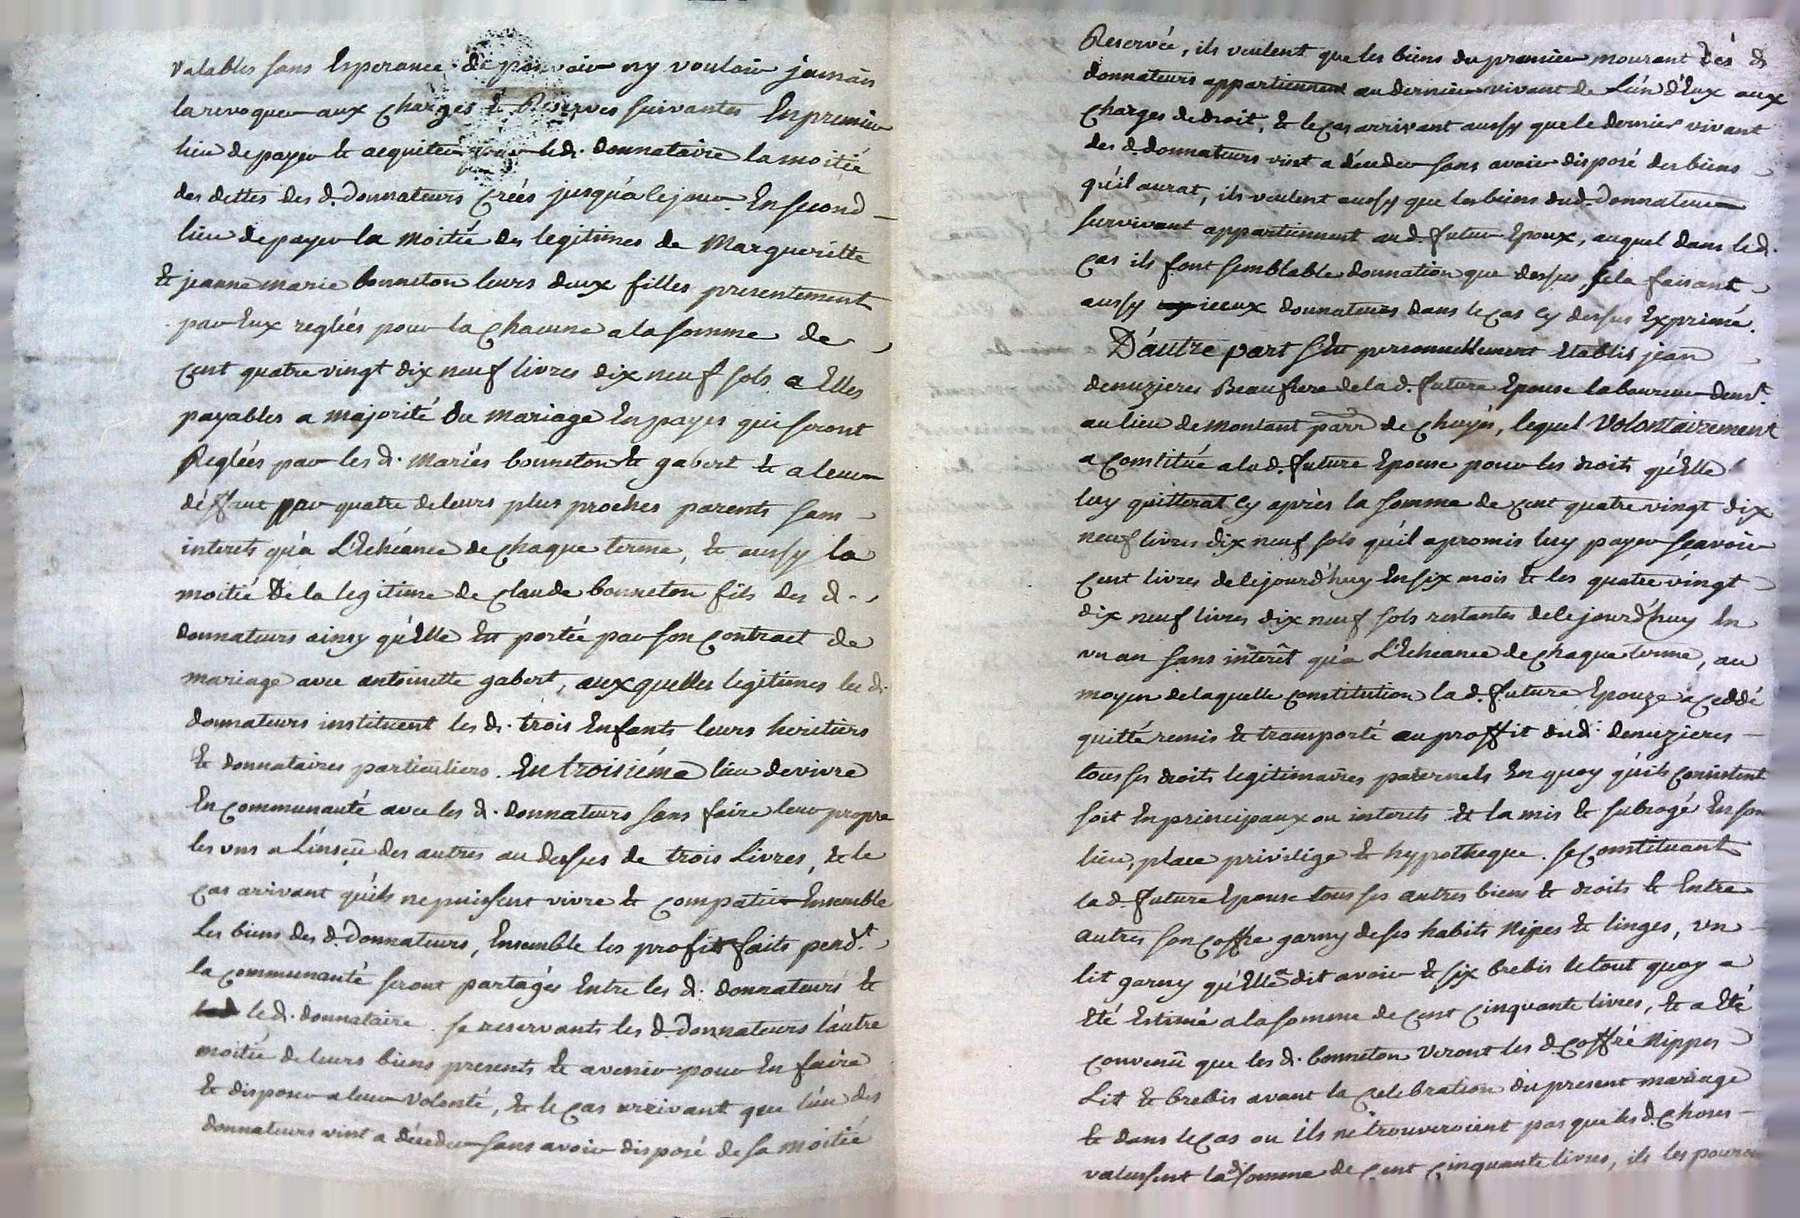 valables sans Esperance de pouvoir ny vouloir jamais
la revoquer aux charges & Reserves suivantes En premier
lieu de payer & acquiter pour led. donnataire la moitié
des dettes des d. Donnateurs Créés jusqu'a ce jour. En second
lieu de payer la moitié des legitimes de Margueritte
& jeanne marie bonneton leurs deux filles presentement
par Eux reglées pour la chacune a la somme de
cent quatre vingt dix neuf livres dix neuf sols a Elles
payables a majorité ou mariage En payes qui seront
Reglées par les d. mariés bonneton & gabert & a leur
déffaut par quatre de leurs plus proches parents sans
interets qu'a L'Echéance de chaque terme, & aussy la
moitié de la legitime de claude bonneton fils des d.
donnateurs ainsy qu'Elle Est portée par son contract de
mariage avec antoinette gabert, auxquelles legitimes les d.
donnateurs instituent les d. trois Enfants leurs heritiers
& donnataires particuliers. En troisiéme lieu de vivre
En communauté avec les d. donnateurs sans faire leur propre
les uns a L'insçû des autres au dessus de trois Livres, & le
cas arrivant qu'ils ne puissent vivre & compatir Ensemble
Les biens des d. Donnateurs, Ensemble les profit faits pend.t
la communauté seront partagés Entre les d. donnateurs &
le d. donnataire. se reservants les d. Donnateurs l'autre
moitié de leurs biens presents & avenir pour En faire
& disposer a leur volonté, & le cas arrivant que l'un des
donnateurs vint a décéder sans avoir disposé de sa moitié
Reservée, ils veulent que les biens du premier mourant des d.
donnateurs appartiennent au dernier vivant de L'un d'Eux aux
charges de droit, & le cas arrivant aussy que le dernier vivant
des d. donnateurs vint a décéder sans avoir disposé des biens
qu'il aurat, ils veulent aussy que les biens du d. Donnateur
survivant appartiennent au d. futur Epoux, auquel dans le d.
cas ils font semblable donnation que dessus, cela faisant
aussy iceux donnateurs dans le cas cy dessus Exprimé.
D'autre part s'Est personnellement Etablis jean
denuzieres Beaufrere de la d. future Epouse laboureur demt.
au lieu de montant parr de chuyés, lequel volontairement
a constitué a la d. future Epouse pour les droits qu'Elle
luy quitterat cy après la somme de cent quatre vingt dix
neuf livres dix neuf sols qu'il a promis luy payer sçavoir
cent livres de ce jourd'huy En six mois & les quatre vingt
dix neuf livres dix neuf sols restantes de ce jourd'huy En
un an sans intêrêt qu'a L'Echeance de chaque terme, au
moyen de laquelle constitution la d. future Epouze a ceddé
quitté remis & transporté au proffit du d. denuzieres
tous ses droits legitimaires paternels En quoy qu'ils consistent
soit En principaux ou interets & la mis & subrogé En son
lieu, place privilige & hypotheque. se constituant
la d. future Epouse tous ses autres biens & droits & Entre
autres son coffre garny de ses habits Nipes & linges, un
lit garny qu'Elle a dit avoir & six brebis le tout quoy a
Eté Estimé a la somme de cent cinquante livres, & a Eté
convenû que les d. bonneton veront les d. coffré Nippes
Lit & brebis avant la celebration du present mariage
& dans le cas ou ils ne trouveroient pas que les d. choses
valussent la d. somme de cent cinquante livres, ils les